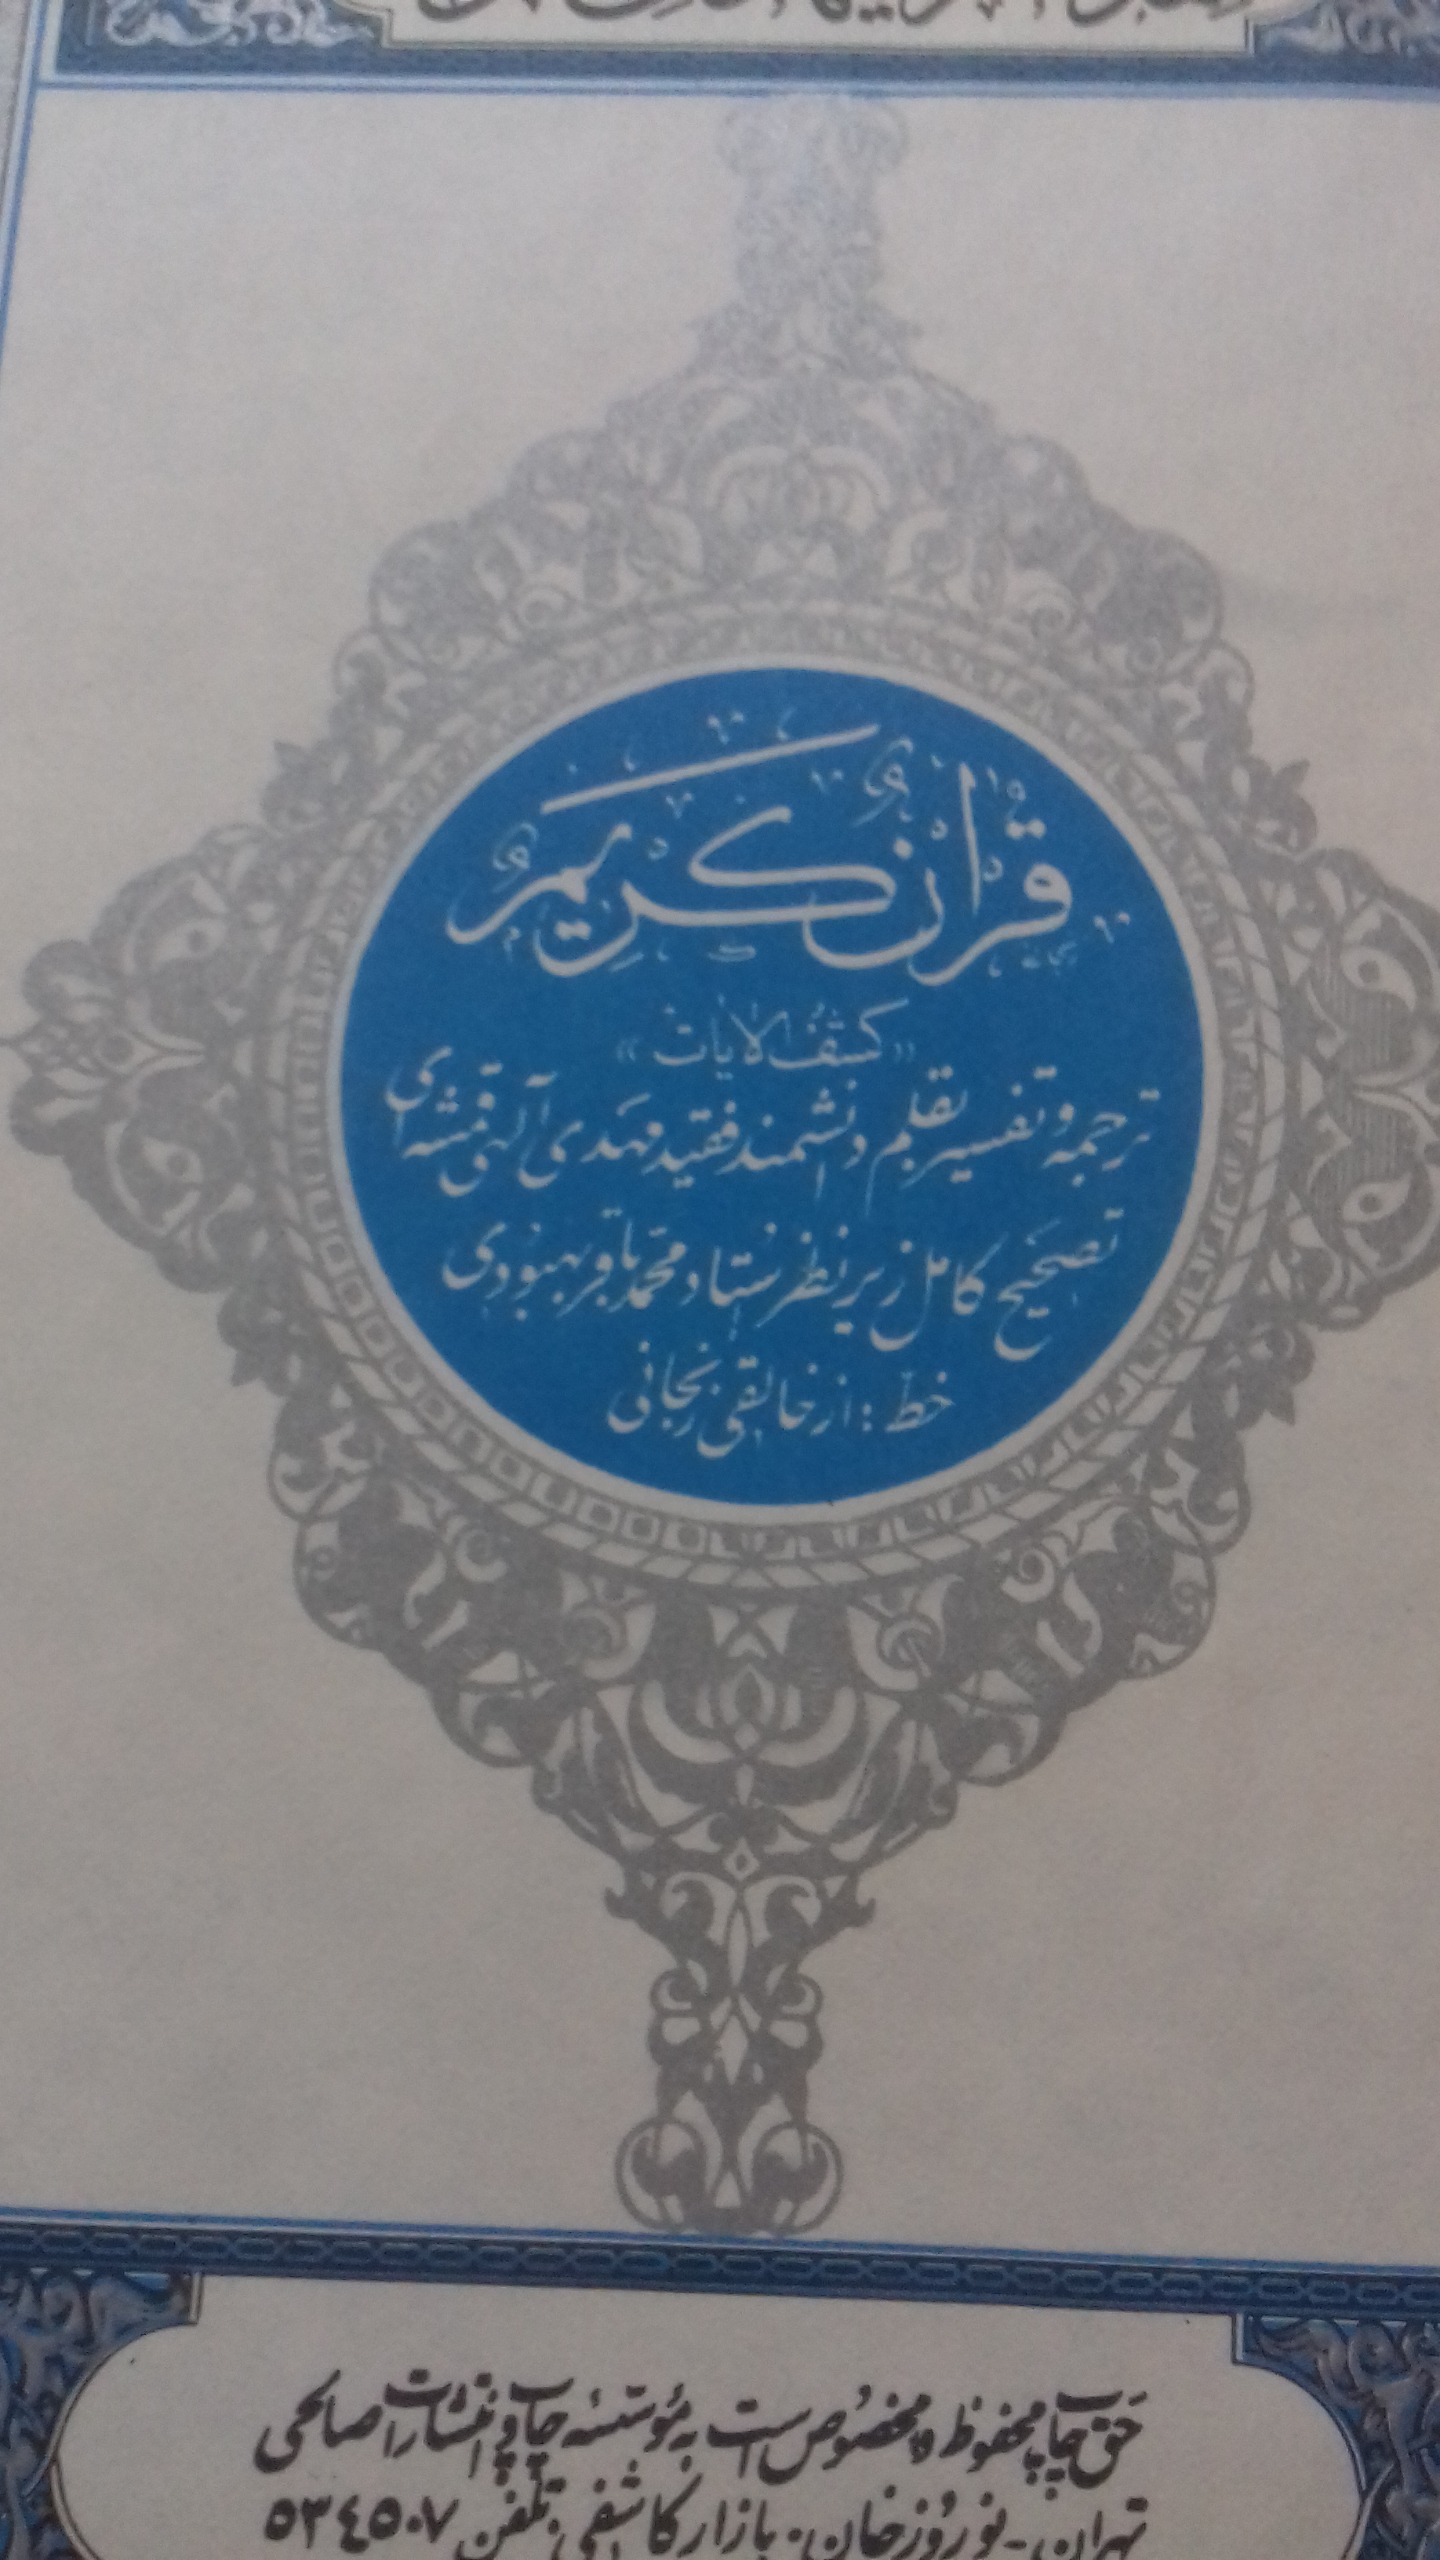 قرآن کریم
«کشف الآیات»
ترجمه و تفسیر بقلم دانشمند فقید مهدی آلهی قمشه‌ای
تصحیح کامل زیر نظر استاد محمد باقر بهبودی
خط: از خالقی زنجانی
حق چاپ محفوظ و مخصوص است به مؤسسه چاپ و انتشارات صالحی
تهران - نوروزخان. بازار کاشفی. تلفن ۵۳۴۵۰۷